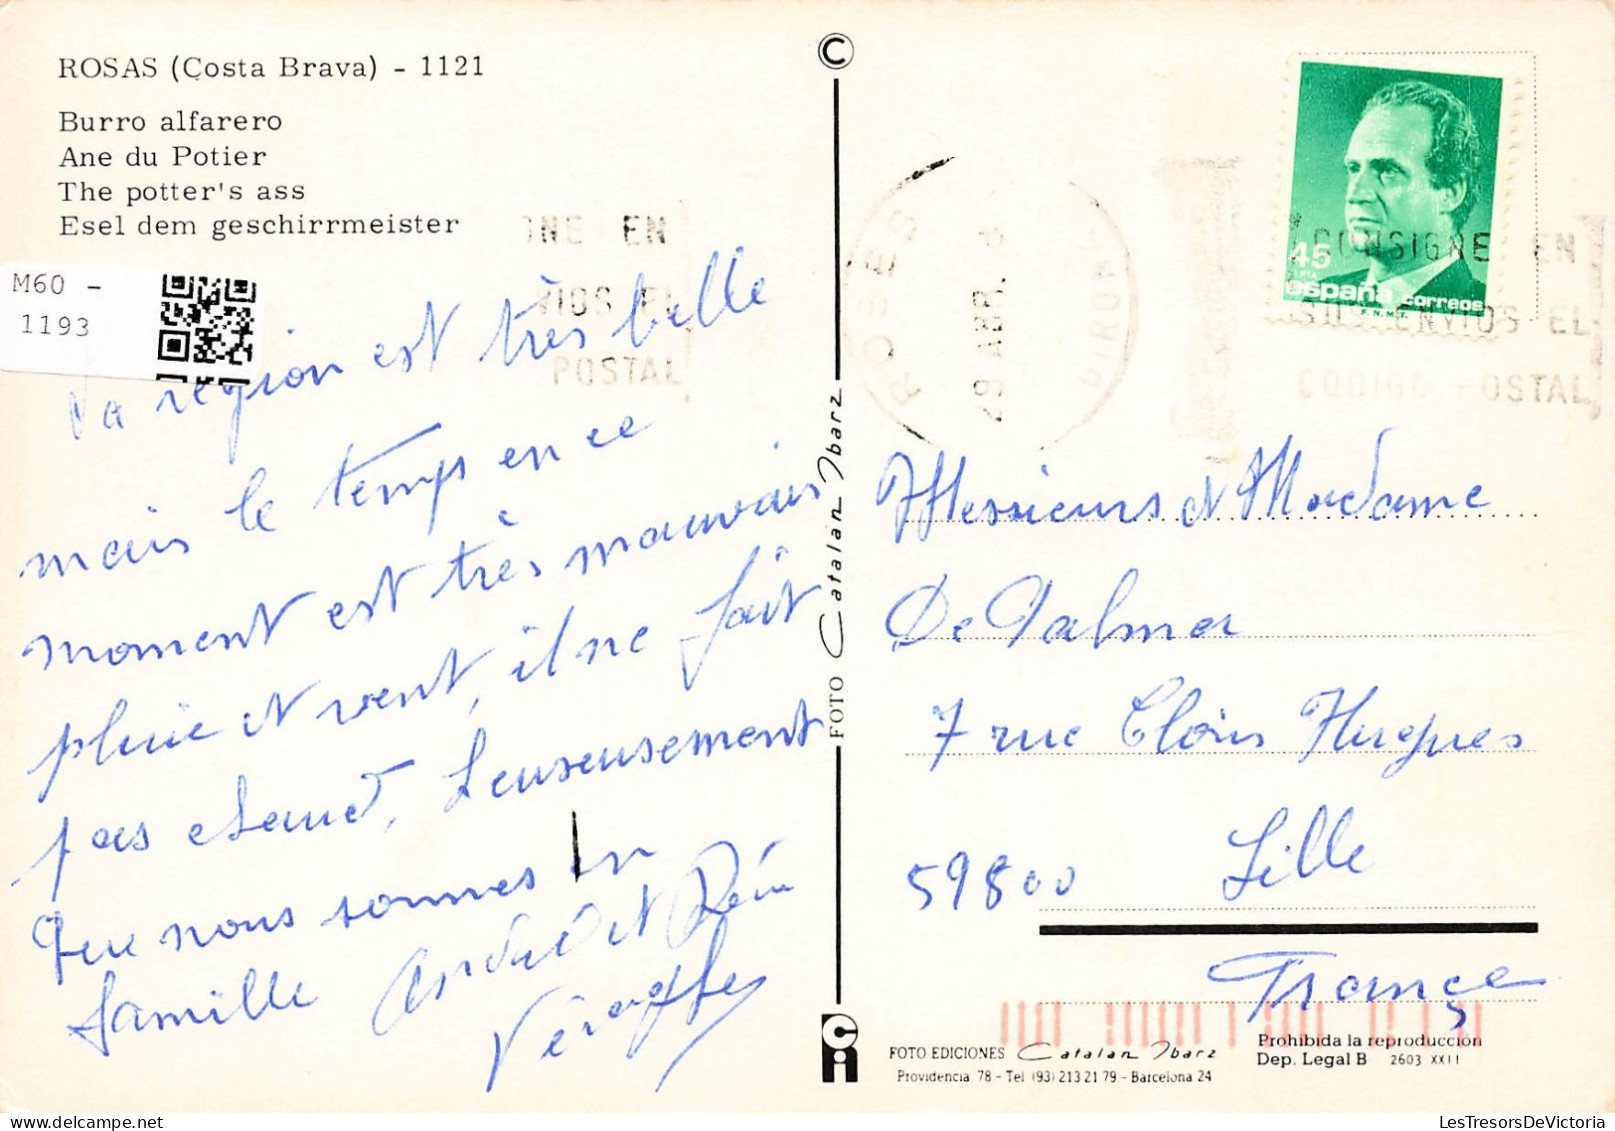 ROSAS (Costa Brava) - 1121
Burro alfarero
Ane du Potier
The potter's ass
Esel dem geschirrmeister
M60 -
1193
La region est très belle
mais le temps en ce
moment est très mauvais
pluie et vent, il ne fait
pas chaud, heureusement
que nous sommes en
famille
©
FOTO Catalan Ibarz
NE EN
VIOS EL
POSTAL
ROSES
29 ABR.
GIRONA
CONSIGNE EN
SUS ENVIOS EL
CODIGO POSTAL
45
PTA
españa correos
F.N.M.T.
Messieurs et Madame
De Palmer
7 rue Clovis Hugues
59800 Lille
France
FOTO EDICIONES Catalan Ibarz
Providencia 78 - Tel (93) 213 21 79 - Barcelona 24
Prohibida la reproducción
Dep. Legal B 2603 XXII
LesTresorsDeVictoria